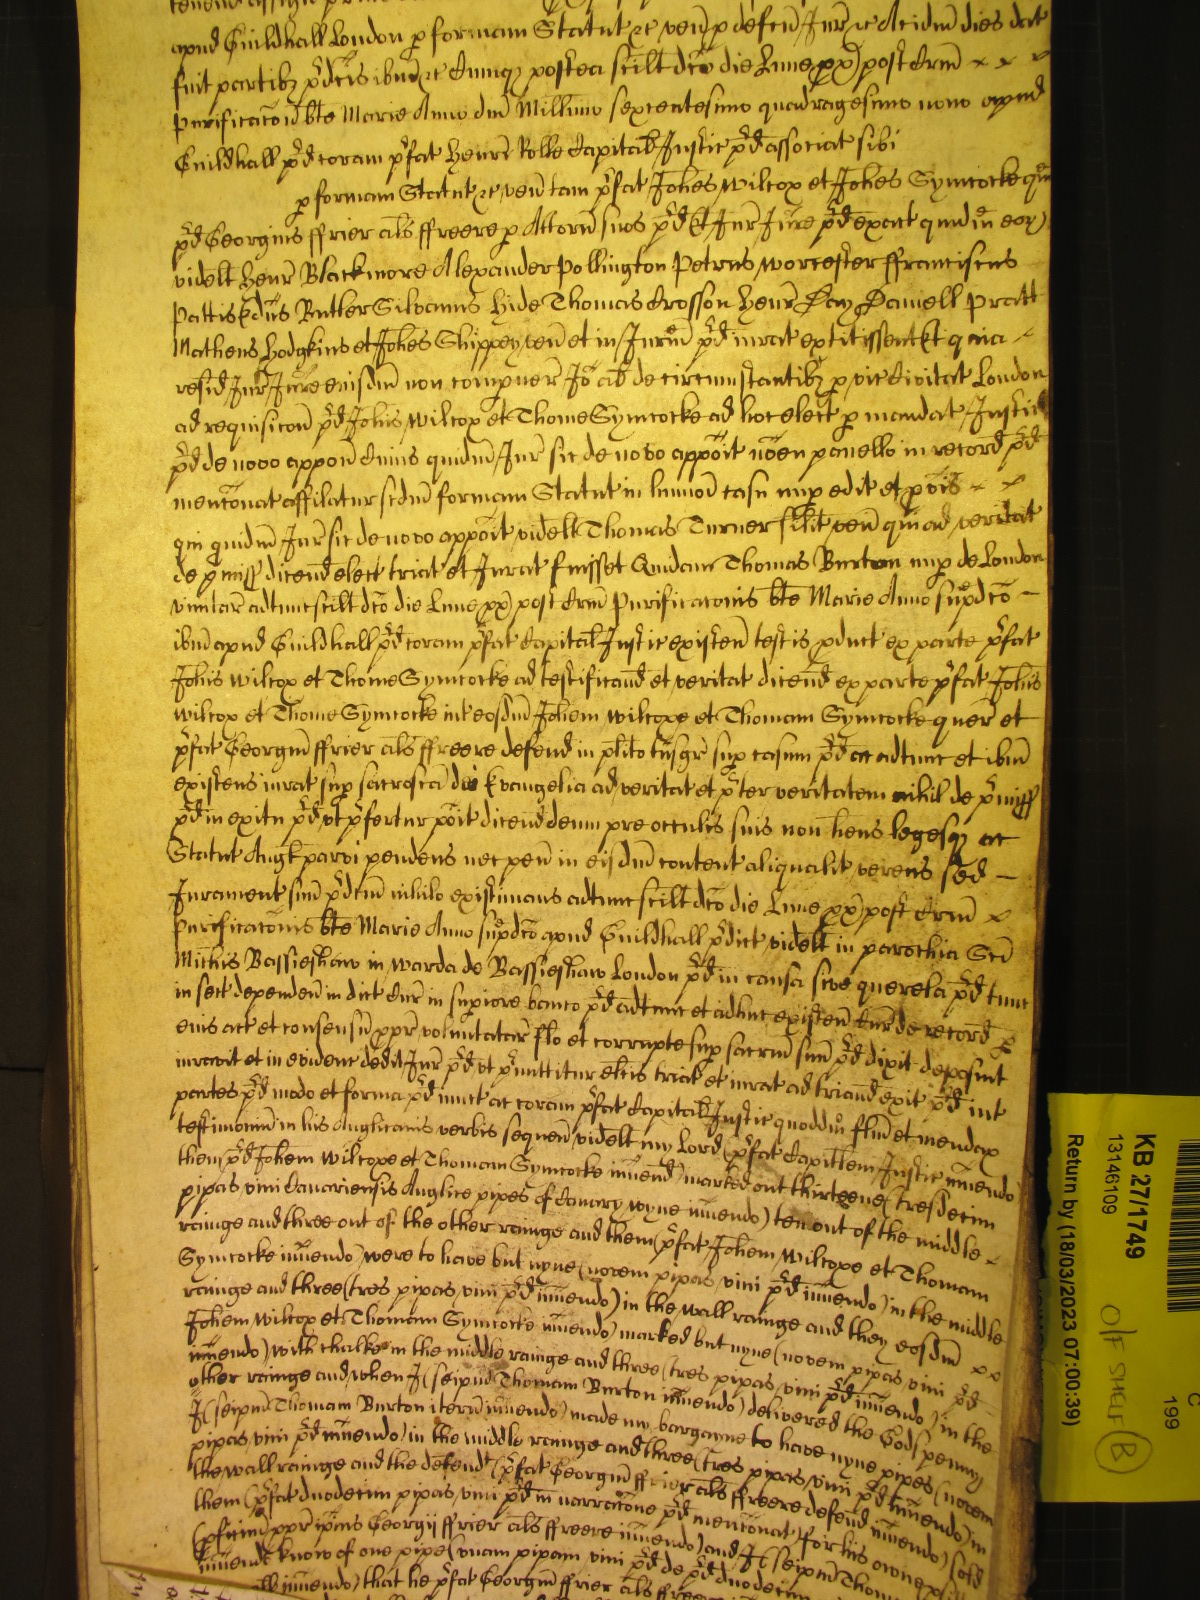 apud Guildhall London p formam Statut &c ven p defend Jur &c Acidm dies dat
fuit partibz pred ibm &c Auinqz postea scilt dco die Lune px post Crm
Purificacon bte Marie Anno dni Millimo sexcentesimo quadragesimo nono apud
Guildhall pred coram prefat Henr Rolle Capital Justic pred associat sibi
p formam Statut &c ven tam prefat Johes Wilcox et Johes Symcocke qm
pred Georgius ffrier als ffreere p Attorn suos pred Et Jur Jure pred exact quid in eor
videlt Henr Blackmore Alexander Pollington Petrus Worcester ffranciscus
Pattis Butler Silvanus Hide Thomas Crosson Henr Day Daniell Pratt
Matheus Hodgkins et Johes Shippey ven et in Jur pred iurat extitissent Et quia
resid Jur Jure eiusdm non compuer Jo al de circumstantibz p vic Civitat London
ad requisicon pred Johis Wilcox et Thome Symcocke ad hoc elect p mandat Justic
pred de novo appon Cuius quidm Jur sic de novo appoit noen panello in record pred
menconat affilatur scdm formam Statut in hmmod casu nup edit et pvis
qui quidm Jur sic de novo appoit videlt Thomas Turner silit ven qui ad veritat
de pmiss dicend elect triat et Jurat fuisset Quidam Thomas Burton nup de London
vinitar adtunc scilt dco die Lune px post Crm Purificaconis bte Marie Anno supdco
ibm apud Guildhall pred coram prefat Capital Justic existen testis pduct ex parte prefat
Johis Wilcox et Thome Symcocke ad testificand et veritat dicend ex parte prefat Johis
Wilcox et Thome Symcocke int eosdm Johem Wilcoxe et Thomam Symcocke quer et
prefat Georgiu ffrier als ffreere defend in plito tnsgr sup casum pred ac adtunc et ibm
existens iurat sup sacrosca dei Evangelia ad veritat et preter veritatem nihil de pmiss
pred in exitu pred ut prefertur poit dicend deum pre occulis suis non hens legesqz ac
Statut Angl parvi pendens nec pen in eisdm content aliqualit verens sed
Jurament suu predcm nihilo existimans adtunc scilt dco die Lune px post Crm
Purificaconis bte Marie Anno supdco apud Guildhall predict videlt in parochia Sci
Michis Bassieshaw in warda de Bassieshaw London pred in causa sive querela pred tunc
in sect dependen in dict Cur in supiore banco pred adtunc et adhuc existen Cur de record
eius act et consensu ppr voluntatar flo et corrupte sup sacrm suu pred dixit deposuit
iuravit et in evident dedit Jur pred ut pmittitur elcis triat et iurat ad triand exit pred int
partes pred modo et forma pred iunct ac coram prefat Capital Justic quoddm flm et mendax
testimoniu in his Anglicanis verbis sequen videlt my Lord (prefat Capitlem Justic inuendo)
them (pred Johem Wilcoxe et Thomam Symcocke inuend) marked out thirteene (tresdecim
pipas vini Canariensis Anglice pipes of Canary wyne inuendo) ten out of the middle
rainge and three out of the other rainge and them (prefat Johem Wilcoxe et Thomam
Symcocke inuendo) were to have but nyne (novem pipas vini pred inuendo) in the middle
rainge and three (tres pipas vini pred inuendo) in the wall rainge and they eosdm
Johem Wilcox et Thomam Symcocke inuendo) marked but nyne (novem pipas vini pred
inuendo) with chalke in the middle rainge and three (tres pipas vini pred inuendo) in the
other rainge and when J (seipm Thomam Burton inuendo) delivered the Gods penny
J (seipm Thomam Burton iteru inuendo) made my bargayne to have nyne pipes (novem
pipas vini pred inuendo) in the middle rainge and three (tres pipas vini pred inuendo) in
the wall rainge and the defendt (prefat Georgiu ffrier als ffreere defend inuendo) sold
them (prefat duodecim pipas vini pred in narracone pred menconat for his owne
ppr ipius Georgij ffrier als ffreere inuendo) and J (seipm Thom
inuend know of one pipe (unam pipam vini pred de pred duodecim
inuendo) that he prefat Georgiu ffrier als ffreere
KB 27/1749
13146109
Return by (18/03/2023 07:00:39)
Off SHELF B
C
199